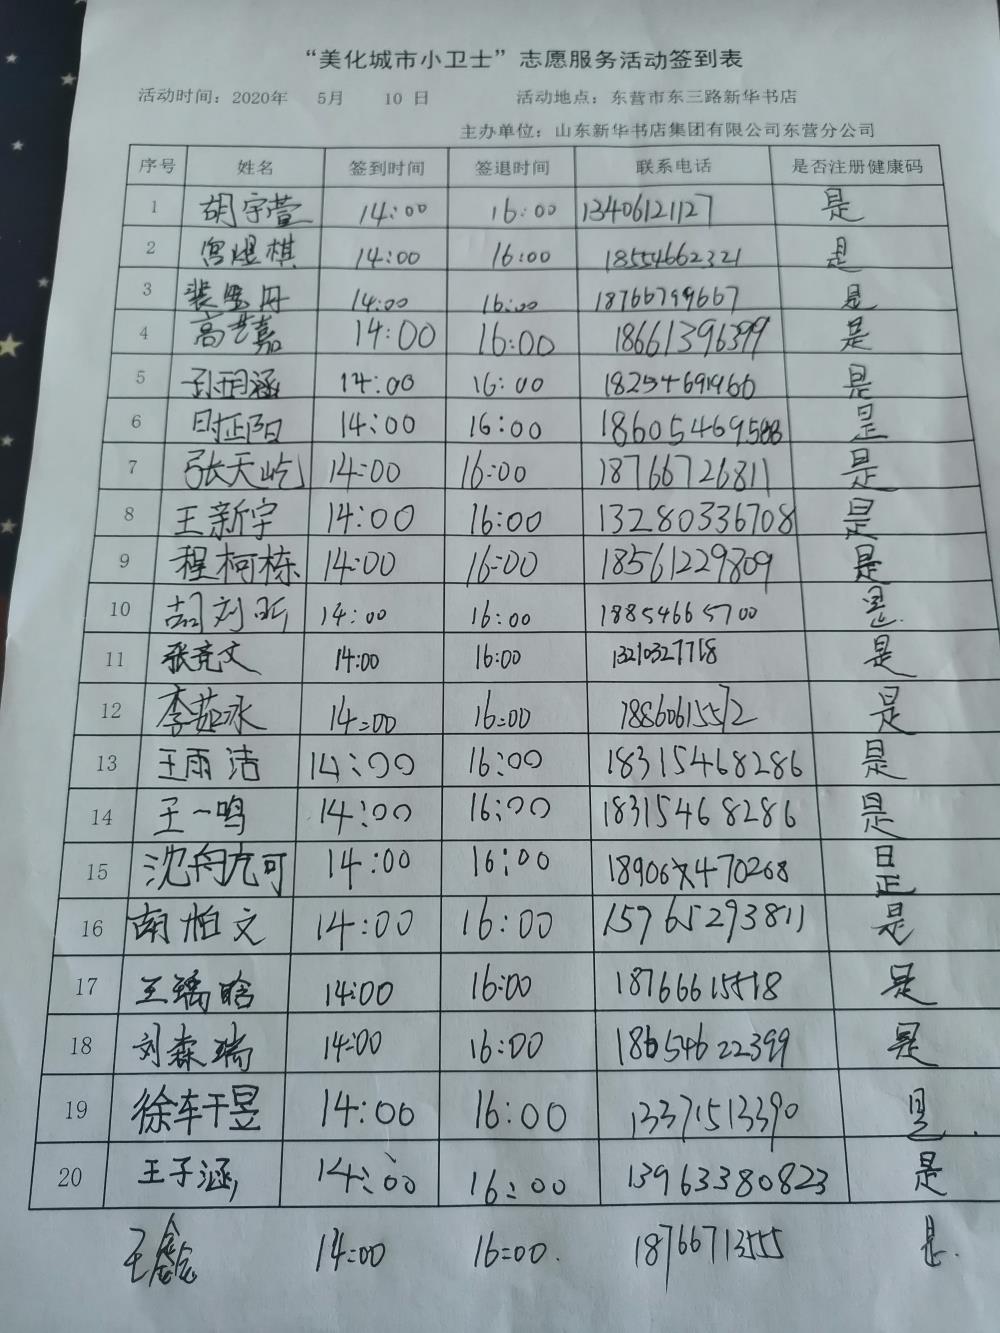 “美化城市小卫士”志愿服务活动签到表
活动时间：2020年 5月 10 日 活动地点：东营市东三路新华书店
主办单位：山东新华书店集团有限公司东营分公司
序号 姓名 签到时间 签退时间 联系电话 是否注册健康码
1 胡宇萱 14:00 16:00 13406121127 是
2 宫煜棋 14:00 16:00 18554662321 是
3 14:00 16:00 18766799667 是
4 高艺嘉 14:00 16:00 18661396399 是
5 孙玥涵 14:00 16:00 18254691966 是
6 时正阳 14:00 16:00 是
7 张天屹 14:00 16:00 18766726811 是
8 王新宇 14:00 16:00 13280336708 是
9 程柯栋 14:00 16:00 18561229809 是
10 胡刘昕 14:00 16:00 18854665700 是.
11 张竞文 14:00 16:00 13210327718 是
12 李茹冰 14:00 16:00 18860615572 是
13 王雨洁 14:00 16:00 18315468286 是
14 王一鸣 14:00 16:00 18315468286 是
15 14:00 16:00 是
16 南柏文 14:00 16:00 15965293811 是
17 14:00 16:00 是
18 刘森瑞 14:00 16:00 18654622399 是
19 徐车干昱 14:00 16:00 13371513390 是
20 王子涵 14:00 16:00 13963380823 是
王 14:00 16:00. 18766713555 是.